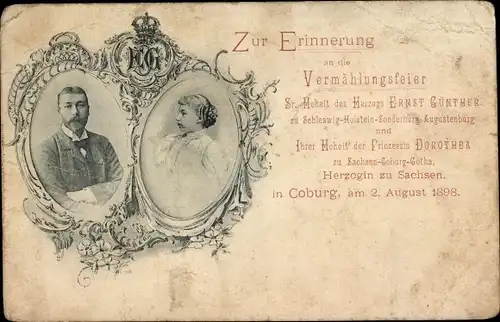 Zur Erinnerung
an die
Vermählungsfeier
Sr. Hoheit des Herzogs ERNST GÜNTHER
zu Schleswig-Holstein-Sonderburg-Augustenburg
und
Ihrer Hoheit der Prinzessin DOROTHEA
zu Sachsen-Coburg-Gotha,
Herzogin zu Sachsen.
in Coburg, am 2. August 1898.